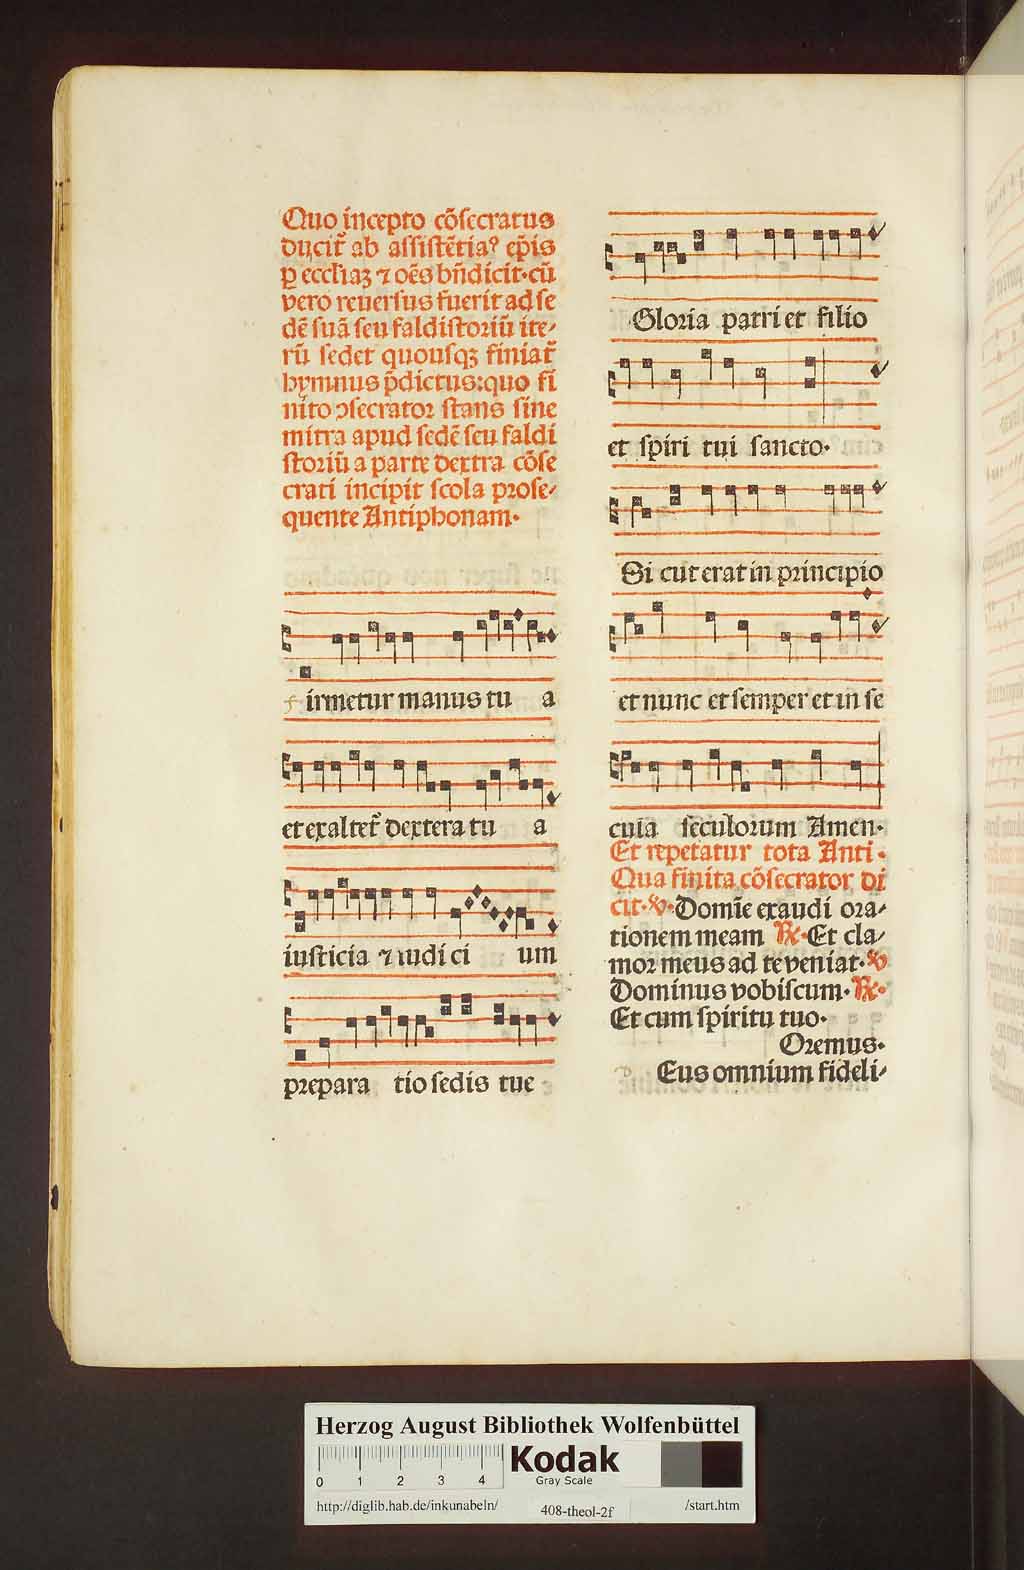 Quo incepto cõsecratus
ducit᷑ ab assistẽtiaꝰ ep̃is
ꝑ eccl'iaꝫ ⁊ oẽs bñdicit·cũ
vero reuersus fuerit ad se
dẽ suã seu faldistoriũ ite⸗
rũ sedet quousqꝫ finiat᷑
hymnus p̃dictus:quo fi
nito ↄsecrator stans sine
mitra apud sedẽ seu faldi
storiũ a parte dextra cõse
crati incipit scola prose⸗
quente Antiphonam·
f irmetur manus tu a
et exaltet᷑ dextera tu a
iusticia ⁊ iudi ci um
prepara tio sedis tue
Gloria patri et filio
et spiri tui sancto·
Si cut erat in principio
et nunc et semper et in se
cula seculorum Amen·
Et repetatur tota Anti·
Qua finita cõsecrator di
cit·℣·Domĩe exaudi ora⸗
tionem meam ℟·Et cla⸗
mor meus ad te veniat·℣
Dominus vobiscum·℟·
Et cum spiritu tuo·
Oremus·
d Eus omnium fideli⸗
Herzog August Bibliothek Wolfenbüttel
0 1 2 3 4
Kodak
Gray Scale
http://diglib.hab.de/inkunabeln/ 408-theol-2f /start.htm